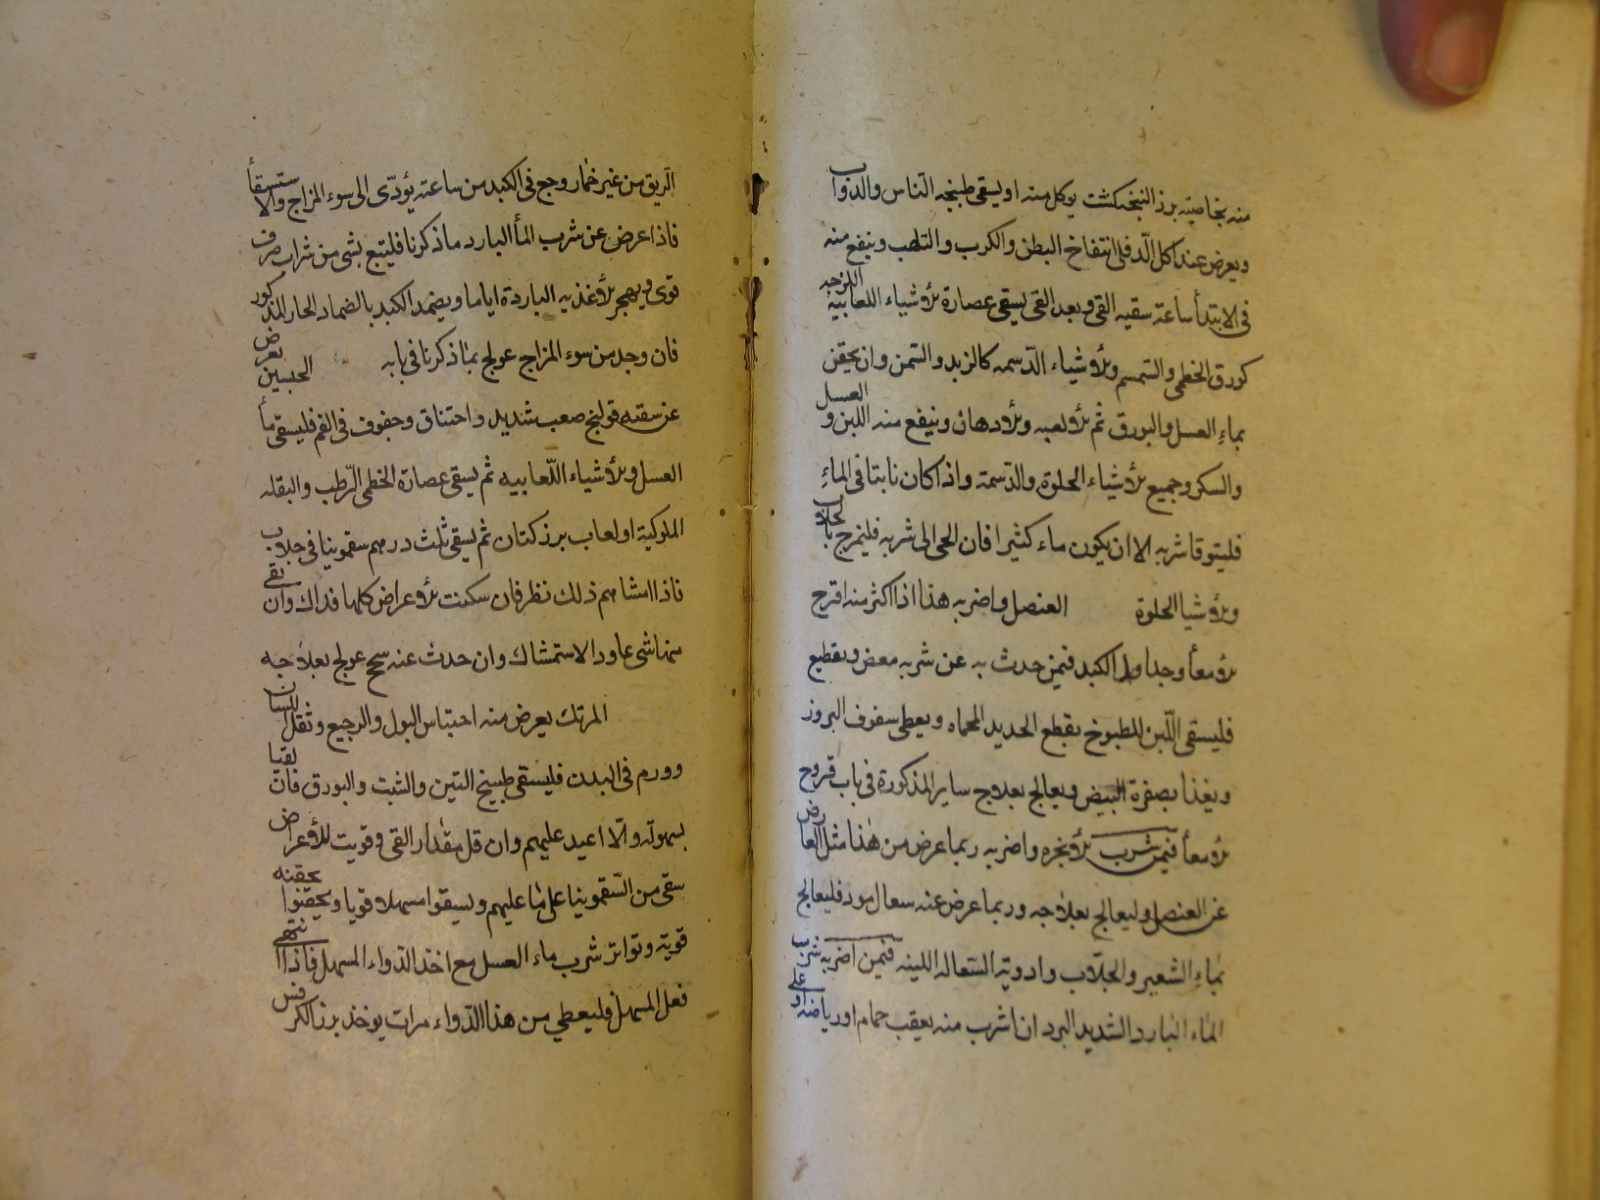 منه بخاصيته برز البنجنكشت يوكل منه او يسقى طبيخه الناس والدواب
ويعرض عند اكل الدفلى انتفاخ البطن والكرب والتلهب وينفع منه
فى الابتدأ ساعة سقيه القى وبعد القى يسقى عصارة الأشياء اللعابية اللزجه
كورق الخطمى والسمسم والأشياء الدسمه كالزبد والسمن وان يحقن
بماءِ العسل والبورق ثم الألعبه والأدهان وينفع منه اللبن والعسل
والسكر وجميع الأشياء الحلوة والدسمة واذا كان نابتا فى الماءِ
فليتوقا شربه الا ان يكون ماء كثيرا فان الجى الى شربه فليمزج بالجلاب
والأشيا الحلوة العنصل واضربه هذا اذا اكثر منه اقرح
الأمعأ وجداول الكبد فيمن حدث به عن شربه مغص وتقطيع
فليسقى اللبن المطبوخ بقطع الحديد المحماه ويعطى سفوف البروز
ويغذا بصفرة البيض ويعالج بعلاج ساير المذكورة فى باب قروح
الأمعأ فيمن شرب الأنجره واضربه ربما عرض من هذا مثل العارض
عن العنصل وليعالج بعلاجه وربما عرض عنه سعال مود فليعالج
بماءِ الشعير والجلاب وادوية السعاله اللينه فيمن اضربه شرب
الماء البارد الشديد البرد ان شرب منه بعقب حمام او رياضه او على
الريق من غير خمار وجع فى الكبد من ساعته يؤدى الى سوء المزاج والاستسقأ
فاذا عرض عن شرب المأ البارد ما ذكرنا فليتبع بشى من شراب صرف
قوى ويهجر الأغذيه الباردة اياما ويضمد الكبد بالضماد الحار المذكور
فان وجد من سوء المزاج عولج بما ذكرنا فى بابه الجبسين يعرض
عن سقته قولنج صعب شديد واختناق وجفوف فى الفم فليسقى مأ
العسل والأشياء اللعابيه ثم يسقى عصارة الخطمى الرطب والبقله
الملوكية او لعاب برز كتان ثم يسقى ثلث درهم سقمونيا فى جلاب
فاذا امشاهم ذلك نظر فان سكنت الأعراض كلها فذاك وان بقى
منها شى عاود الاستمشاك وان حدث عنه سحج عولج بعلاجه
المرتك يعرض منه احتباس البول والرجيع وثقل اللسان
وورم فى البدن فليسقى طبيخ التين والشبت والبورق فان تقيا
بسهولة والا اعيد عليهم وان قل مقدار القى وقويت الأعراض
سقى من السقمونيا على ما عليهم وليسقوا مسهلا قويا ويحقنوا بحقنه
قوية وتواتر شرب ماء العسل مع اخذ الدواء المسهل فاذا انتهى
فعل المسهل فليعطي من هذا الدواء مرات يوخذ برز الكرفس